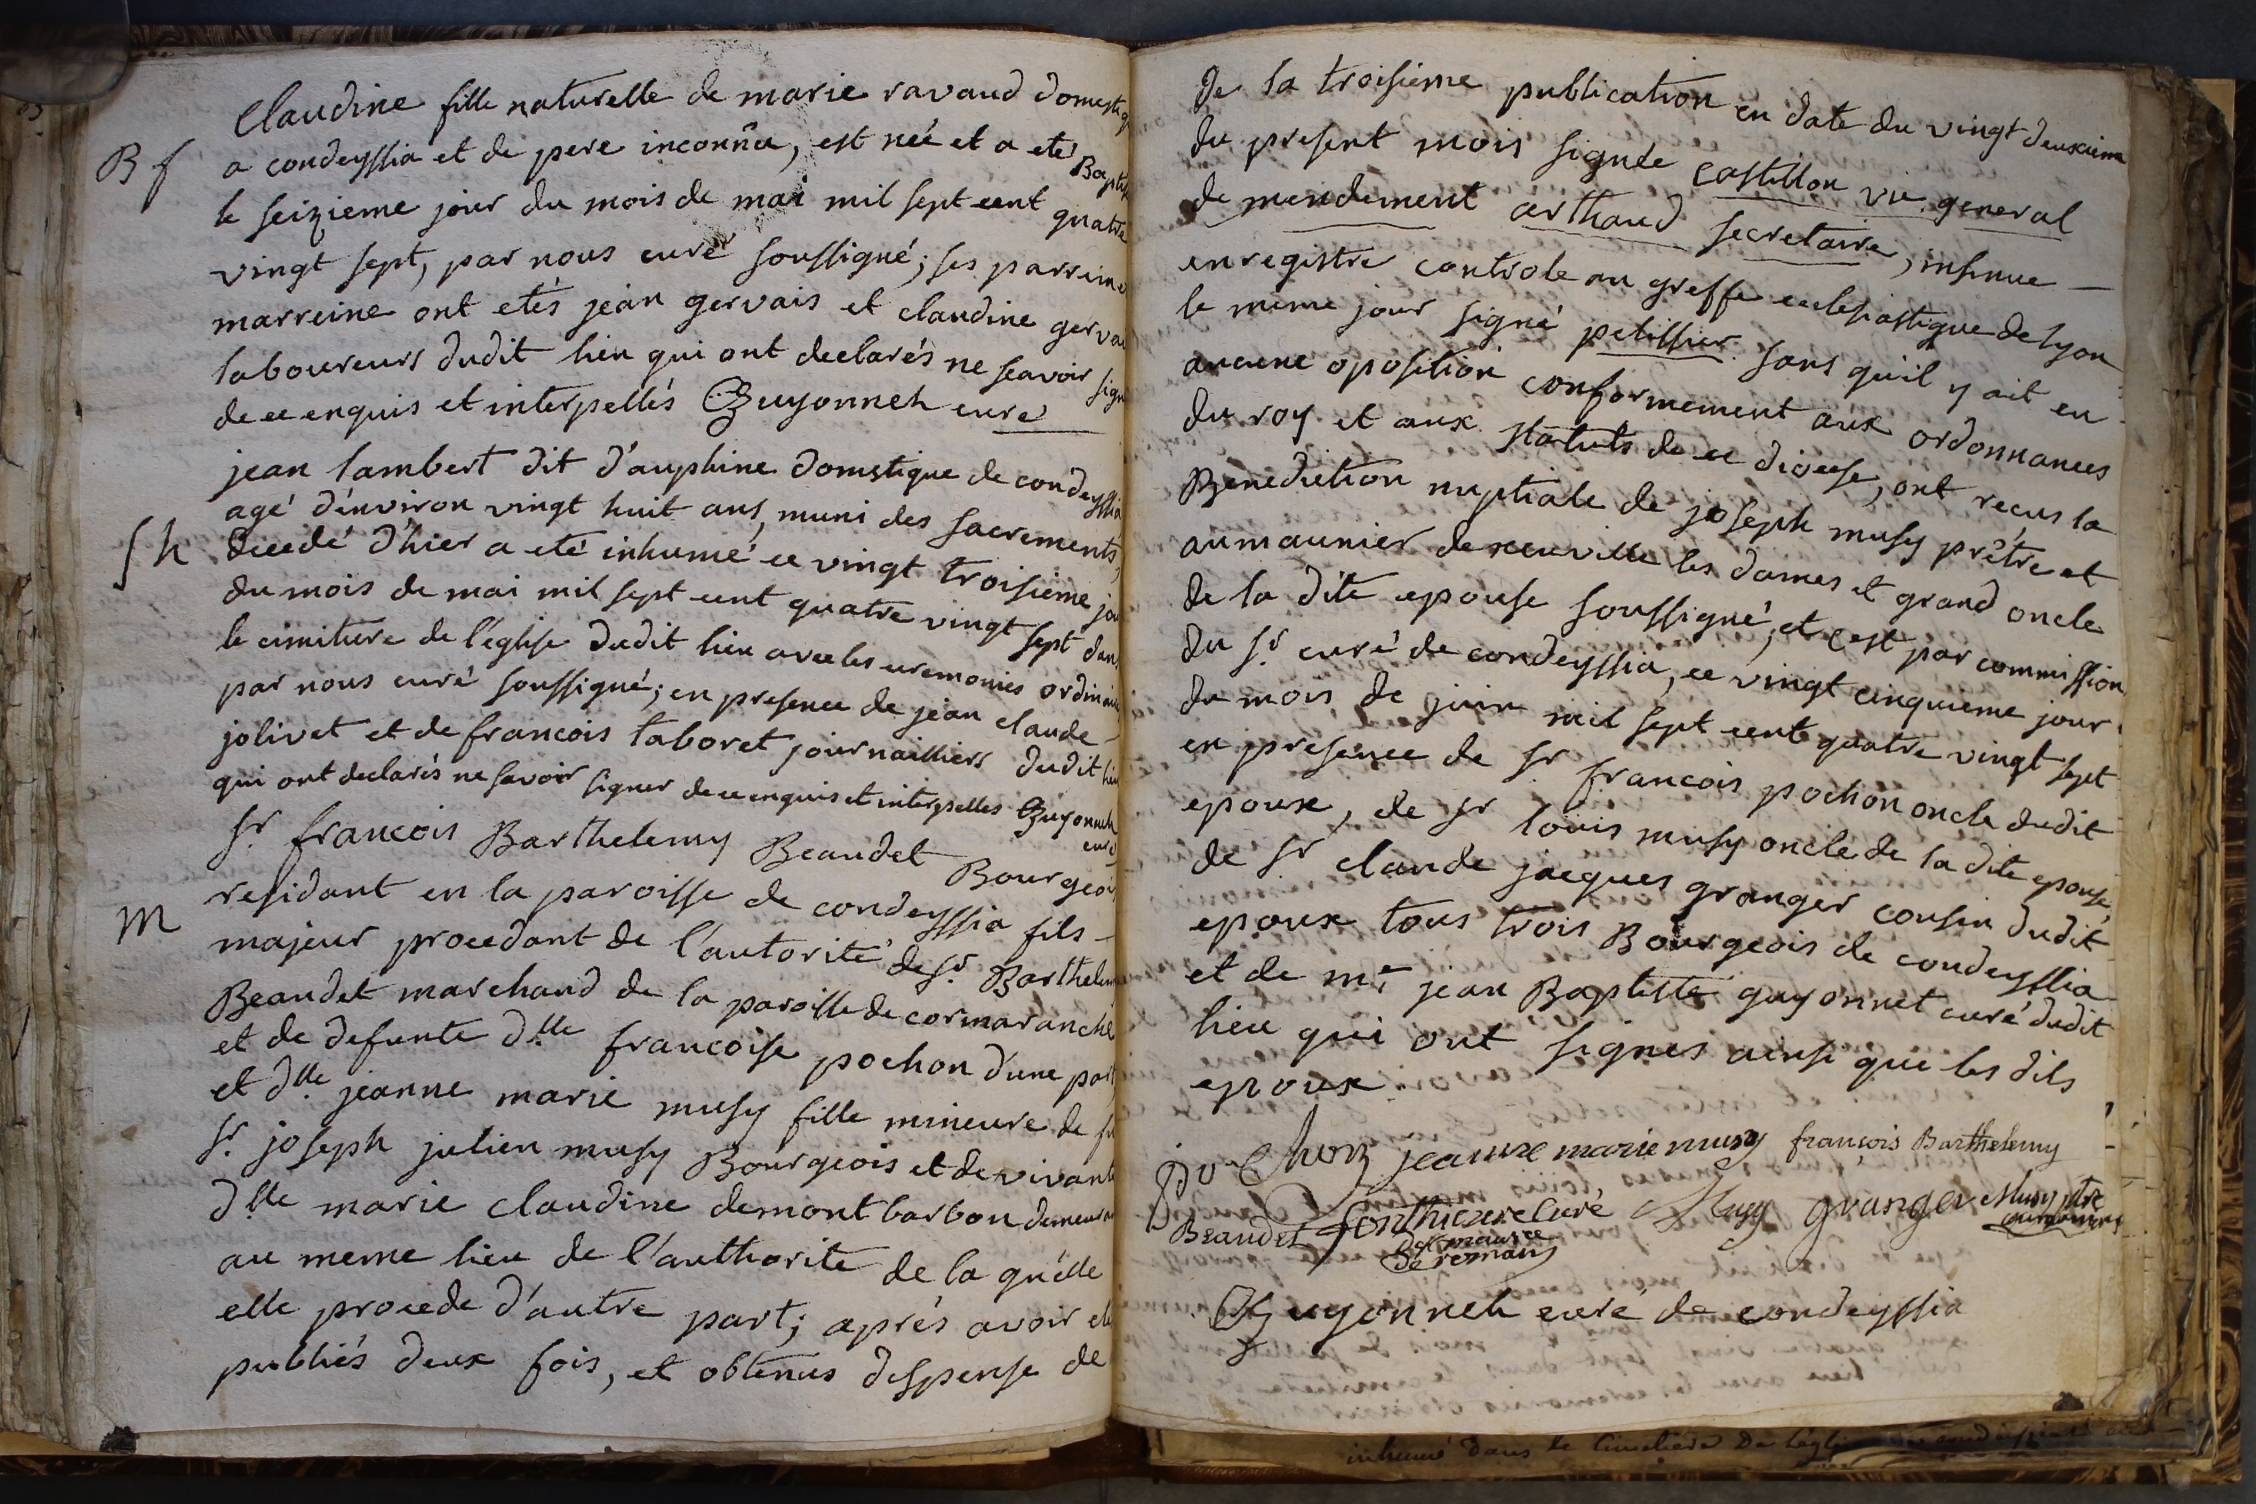 Claudine fille naturelle de marie ravaud domestiq
B f
a condeyssia et de pere inconnu, est née et a eté Baptis
le seizieme jour du mois de mai mil sept cent quatre
vingt sept, par nous curé soussigné; ses parrein e
marreine ont etés jean gervais et claudine gervai
laboureurs dudit lieu qui ont declarés ne scavoir sign
de ce enquis et interpellés Guyonneh curé
jean lambert dit d'auphine domestique de condeyssia
agé d'environ vingt huit ans, muni des sacrements,
S h
decedé d'hier a eté inhumé ce vingt troisieme jou
du mois de mai mil sept cent quatre vingt sept dans
le cimitiere de l'eglise dudit lieu avec les ceremonies ordinaire
par nous curé soussigné; en presence de jean claude
jolivet et de francois taboret journailliers dudit lieu
qui ont declarés ne savoir signer de ce enquis et interpellés Guyonneh
curé
Sr. francois Barthelemy Beaudet Bourgeois
residant en la paroisse de condeyssia fils
M
majeur procedant de l'autorité de Sr. Barthelem
Beaudet marchand de la paroisse de cormaranche
et de defunte dlle francoise pochon d'une part
et dlle jeanne marie musy fille mineure de fu
Sr. joseph julien musy Bourgeois et de vivante
dlle marie claudine demontbarbon demeuran
au meme lieu de l'authorite de la qu'elle
elle procede d'autre part; aprés avoir eté
publiés deux fois, et obtenus dispense de
de la troisieme publication en date du vingt deuxieme
du present mois signée castillon vic. general
de mendement arthaud secretaire, insinue
enregistre controle au greffe ecclesiastique de lyon
le meme jour signé pelissier sans qu'il y ait eu
aucune oposition conformement aux ordonnances
du roy et aux statuts de ce diocese, ont recus la
Benediction nuptiale de joseph musy prêtre et
aumaunier de neuville les dames et grand oncle
de la dite epouse soussigné, et c'est par commission
du Sr. curé de condeyssia, ce vingt cinquieme jour
du mois de juin mil sept cent quatre vingt sept
en presence de Sr francois pochon oncle dudit
epoux, de Sr louis musy oncle de la dite epouse,
de Sr claude jacques granger cousin dudit
epoux tous trois Bourgeois de condeyssia
et de mre jean Baptiste guyonnet curé dudit
lieu qui ont signés ainsi que les dits
epoux
pochon jeanne marie musy françois Barthelemy
Beaudet curé Musy granger Musy ptre
aumonier
de st maurice
de remans
Guyonneh curé de condeyssia
inhumé dans le Cimetiere De l'eglise